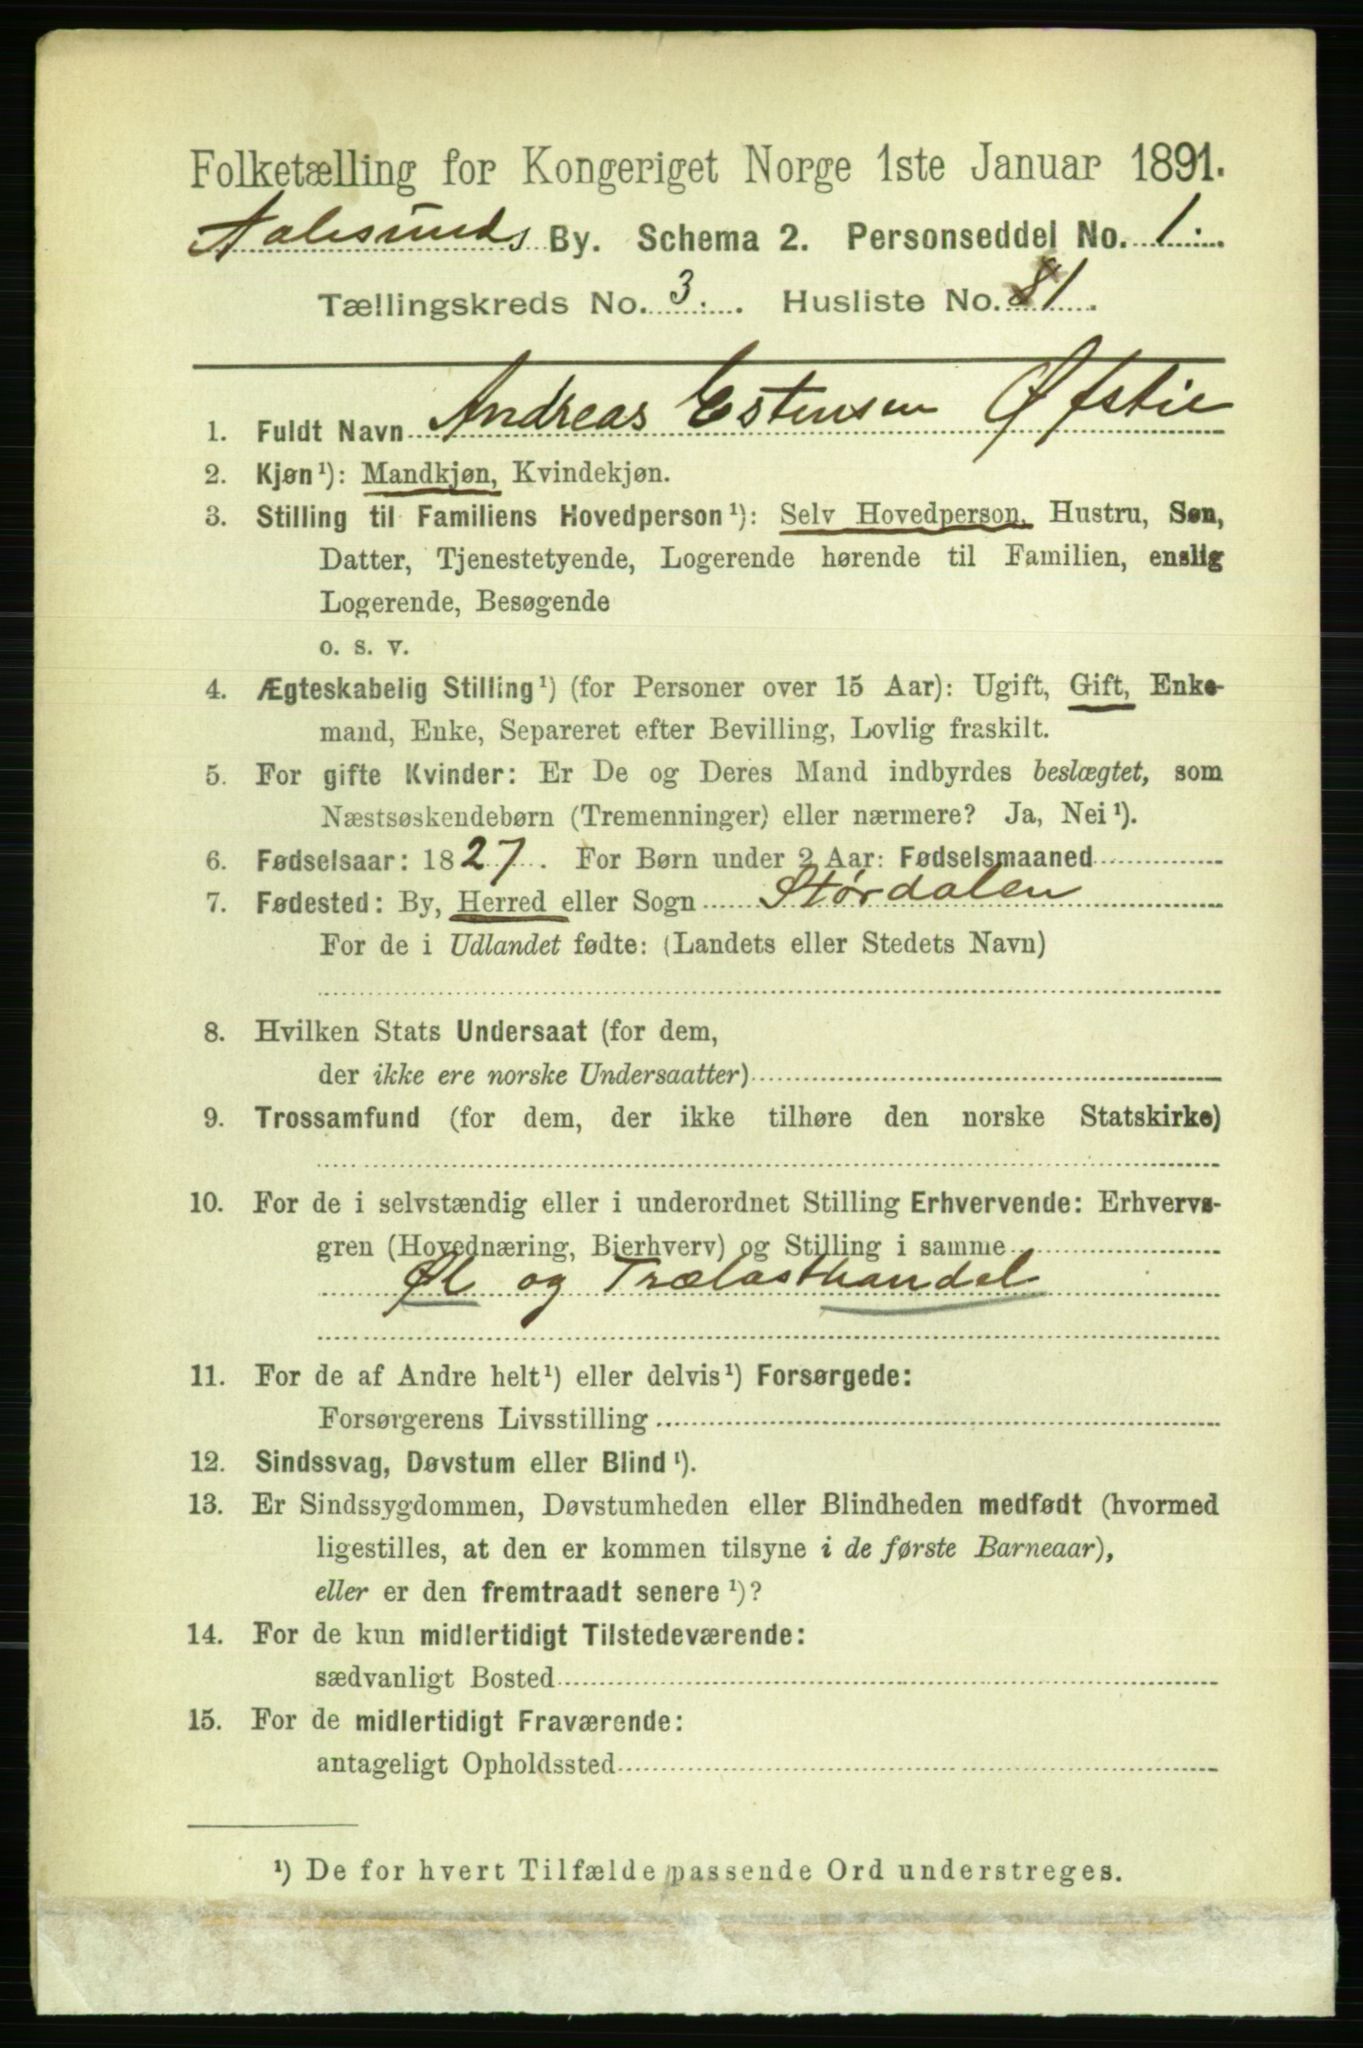 Folketælling for Kongeriget Norge 1ste Januar 1891.
Aalesunds By. Schema 2. Personseddel No. 1.
Tællingskreds No. 3. Husliste No. 81.
1. Fuldt Navn Andreas Estensen Øfstie
2. Kjøn¹): Mandkjøn, Kvindekjøn.
3. Stilling til Familiens Hovedperson¹): Selv Hovedperson, Hustru, Søn,
Datter, Tjenestetyende, Logerende hørende til Familien, enslig
Logerende, Besøgende
o. s. v.
4. Ægteskabelig Stilling¹) (for Personer over 15 Aar): Ugift, Gift, Enke-
mand, Enke, Separeret efter Bevilling, Lovlig fraskilt.
5. For gifte Kvinder: Er De og Deres Mand indbyrdes beslægtet, som
Næstsøskendebørn (Tremenninger) eller nærmere? Ja, Nei¹).
6. Fødselsaar: 1827. For Børn under 2 Aar: Fødselsmaaned
7. Fødested: By, Herred eller Sogn Størdalen
For de i Udlandet fødte: (Landets eller Stedets Navn)
8. Hvilken Stats Undersaat (for dem,
der ikke ere norske Undersaatter)
9. Trossamfund (for dem, der ikke tilhøre den norske Statskirke)
10. For de i selvstændig eller i underordnet Stilling Erhvervende: Erhvervs-
gren (Hovednæring, Bierhverv) og Stilling i samme
Øl og Trælasthandel
11. For de af Andre helt¹) eller delvis¹) Forsørgede:
Forsørgerens Livsstilling
12. Sindssvag, Døvstum eller Blind¹).
13. Er Sindssygdommen, Døvstumheden eller Blindheden medfødt (hvormed
ligestilles, at den er kommen tilsyne i de første Barneaar),
eller er den fremtraadt senere¹)?
14. For de kun midlertidigt Tilstedeværende:
sædvanligt Bosted
15. For de midlertidigt Fraværende:
antageligt Opholdssted
¹) De for hvert Tilfælde passende Ord understreges.